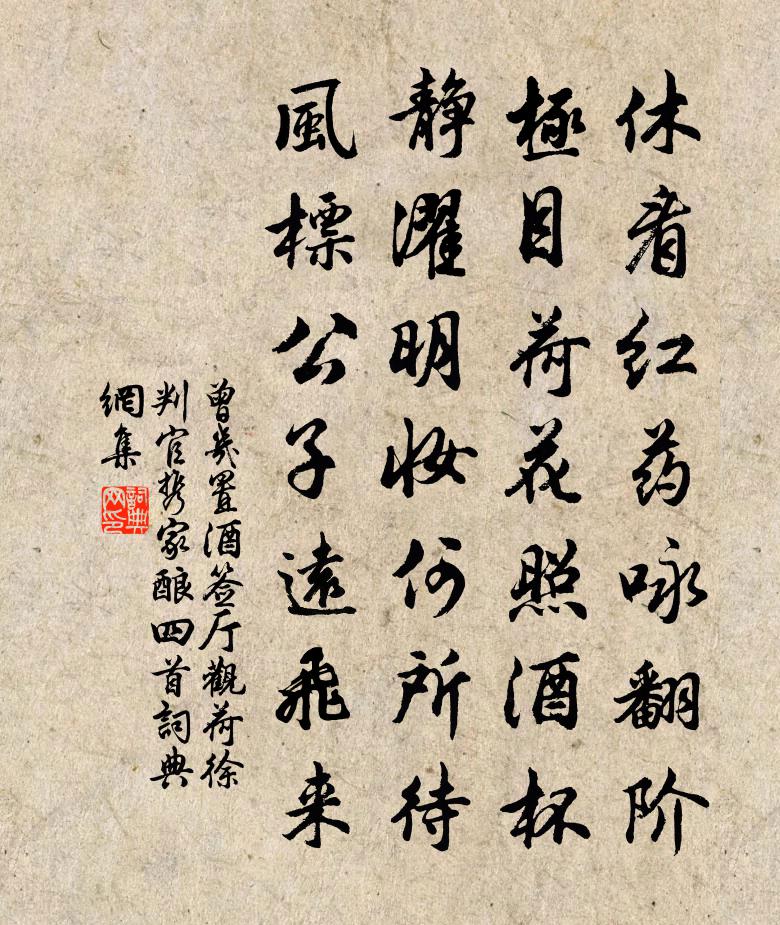 休看红药咏翻阶
極目荷花照酒杯
静濯明妆何所待
風標公子遠飛来
曾幾置酒签厅觀荷徐
判官携家酿四首詞典
網集
詞典
网印